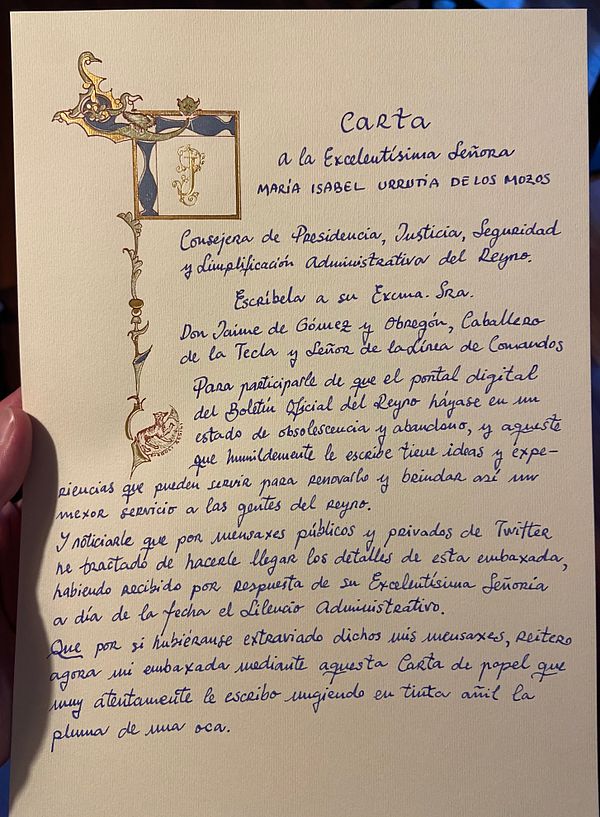 Carta
a la Excelentísima Señora
MARÍA ISABEL URRUTIA DE LOS MOZOS
Consejera de Presidencia, Justicia, Seguridad
y Simplificación Administrativa del Reyno.
Escríbela a su Excma. Sra.
Don Jaime de Gómez y Obregón, Caballero
de la Tecla y Señor de la Línea de Comandos
Para participarle de que el portal digital
del Boletín Oficial del Reyno háyase en un
estado de obsolescencia y abandono, y aqueste
que humildemente le escribe tiene ideas y expe-
riencias que pueden servir para renovallo y brindar así un
mexor servicio a las gentes del reyno.
Y noticiarle que por mensaxes públicos y privados de Twitter
he tractado de hacerle llegar los detalles de esta embaxada,
habiendo recibido por respuesta de su Excelentísima Señoría
a día de la fecha el Silencio Administrativo.
Que por si hubiéranse extraviado dichos mis mensaxes, reitero
agora mi embaxada mediante aquesta Carta de papel que
muy atentamente le escribo ungiendo en tinta añil la
pluma de una oca.